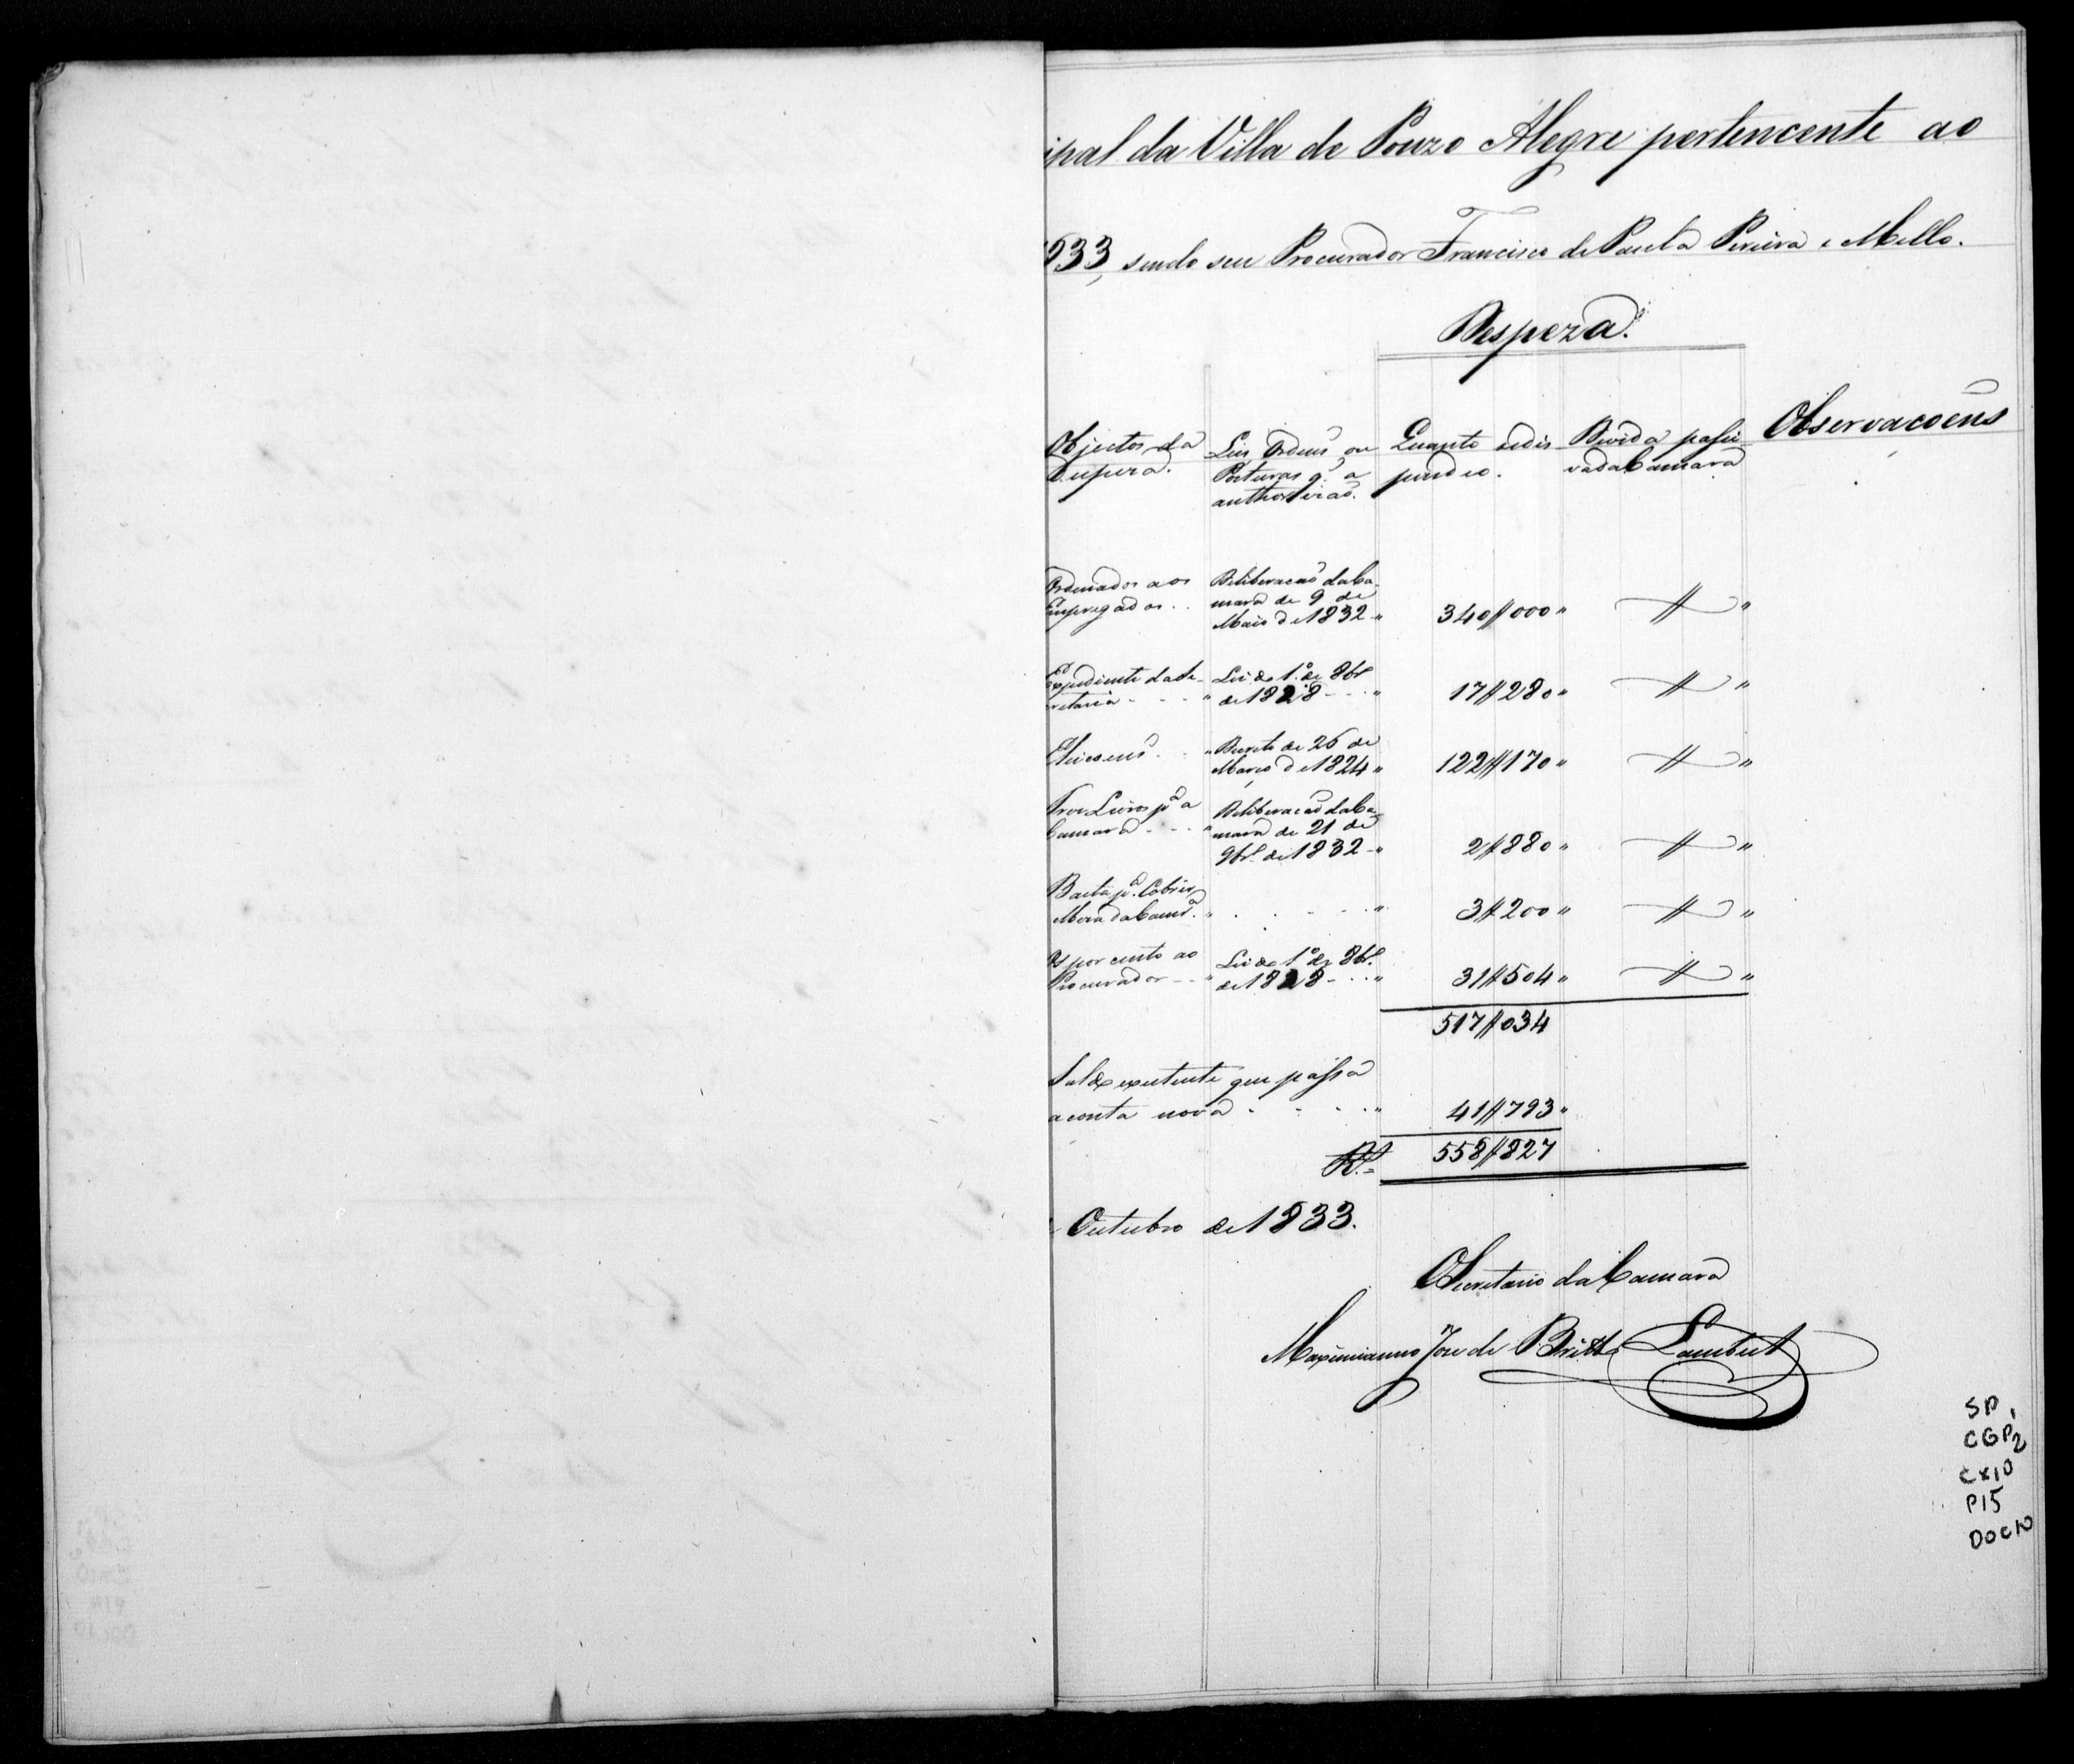 ipal da Villa de Pouzo Alegre pertencente ao
1833, sendo seu Procurador Francisco de Paula Pereira e Mello.
Despeza.
Objectos da
Despeza.
Leis, Ordens ou
Posturas q. a
authorisaõ.
Quanto sedis
pendeo.
Divida passi
va da Camara
Observacoens
Ordenados aos
Empregados ..
Deliberacaõ da Ca-
mara de 9 de
Maio de 1832 "
340$000 "
"
Expediente da Se-
cretaria - - - "
Lei do 1.º de 8br.º
de 1828 - - - "
17$280 "
"
Eleicoens . . "
Decreto de 26 de
Março de 1824 "
122$170 "
"
Tres Livros p.ª a
Camara - - - "
Deliberacaõ da Ca-
mara de 21 de
9br.º de 1832 - "
2$880 "
"
Baeta p.ª Cobrir a
Meza da Camr.ª "
. . - - - "
3$200 "
"
6 por cento ao
Procurador - - "
Lei do 1.º de 8br.º
de 1828 - - - "
31$504 "
"
517$034
Saldo existente que passa
a conta nova - - - - "
41$793 "
R.s =
558$827
Outubro de 1833.
O Secretario da Camara
Maximianno Jose de Britto Lambert
SP 1
CGP2
CX10
P15
DOC10